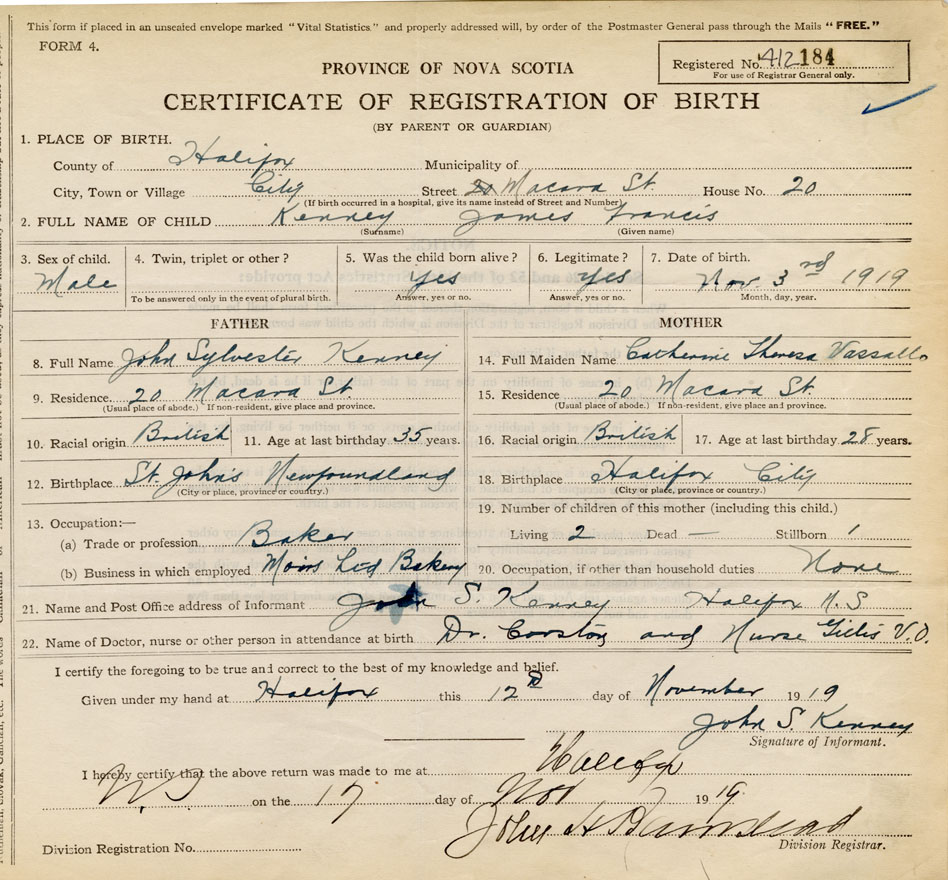 This form if placed in an unsealed envelope marked "Vital Statistics" and properly addressed will, by order of the Postmaster General pass through the Mails "FREE."
FORM 4.
Registered No. 412184
For use of Registrar General only.
PROVINCE OF NOVA SCOTIA
CERTIFICATE OF REGISTRATION OF BIRTH
(BY PARENT OR GUARDIAN)
1. PLACE OF BIRTH.
County of Halifax Municipality of
City, Town or Village City Street 20 Macara St. House No. 20
(If birth occurred in a hospital, give its name instead of Street and Number)
2. FULL NAME OF CHILD Kenney James Francis
(Surname) (Given name)
3. Sex of child. 4. Twin, triplet or other? 5. Was the child born alive? 6. Legitimate? 7. Date of birth.
Male Yes yes Nov. 3rd 1919
To be answered only in the event of plural birth. Answer, yes or no. Answer, yes or no. Month, day, year.
FATHER MOTHER
8. Full Name John Sylvester Kenney 14. Full Maiden Name Catherine Theresa Vassallo
9. Residence. 20 Macara St. 15. Residence 20 Macara St.
(Usual place of abode.) If non-resident, give place and province. (Usual place of abode.) If non-resident, give place and province.
10. Racial origin British 11. Age at last birthday 35 years. 16. Racial origin British 17. Age at last birthday 28 years.
12. Birthplace St. John's Newfoundland 18. Birthplace Halifax City
(City or place, province or country.) (City or place, province or country.)
13. Occupation:— 19. Number of children of this mother (including this child.)
(a) Trade or profession. Baker Living 2 Dead — Stillborn 1
(b) Business in which employed Moirs Ltd Bakery 20. Occupation, if other than household duties None
21. Name and Post Office address of Informant John S. Kenney Halifax N.S
22. Name of Doctor, nurse or other person in attendance at birth Dr. and Nurse V.O.
I certify the foregoing to be true and correct to the best of my knowledge and belief.
Given under my hand at Halifax this 12 day of November 1919
John S. Kenney
Signature of Informant.
I hereby certify that the above return was made to me at Halifax
N.S on the 17 day of Nov 1919.
John H Barnstead
Division Registration No. Division Registrar.